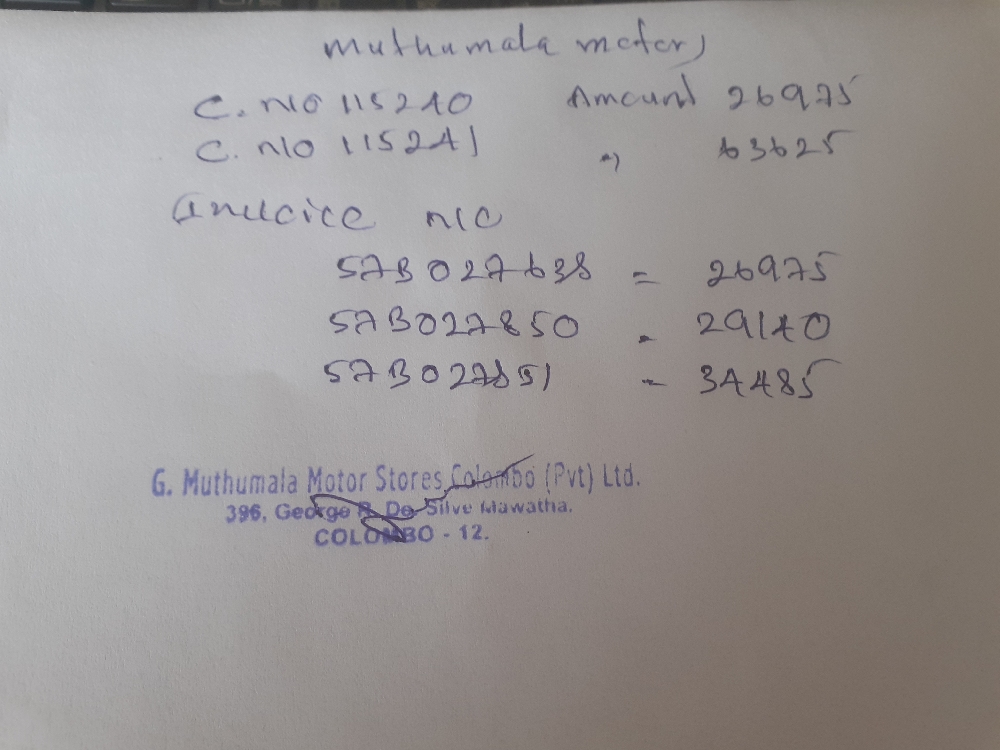 Muthumala motors
C. n/o 115240 Amount 26975
C. n/o 115241 " 63625
Invoice n/o
57B027638 = 26975
57B027850 - 29140
57B027851 - 34485
G. Muthumala Motor Stores Colombo (Pvt) Ltd.
396, George R. De Silve Mawatha.
COLOMBO - 12.